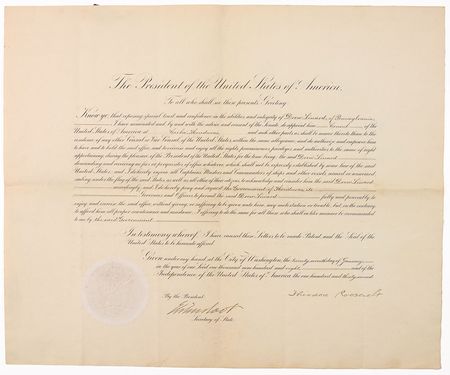 The President of the United States of America,
To all who shall see these presents, Greeting:
Know ye, that reposing special trust and confidence in the abilities and integrity of Drew Linard, of Pennsylvania,
I have nominated and by and with the advice and consent of the Senate do appoint him Consul of the
United States of America at Ceiba, Honduras, and such other parts as shall be nearer thereto than to the
residence of any other Consul or Vice Consul of the United States within the same allegiance, and do authorize and empower him
to have and to hold the said office and to exercise and enjoy all the rights, preeminences, privileges and authorities to the same of right
appertaining, during the pleasure of the President of the United States for the time being; the said Drew Linard
demanding and receiving no fees or perquisites of office whatever, which shall not be expressly established by some law of the
United States. And I do hereby enjoin all Captains, Masters and Commanders of ships and other vessels, armed or unarmed,
sailing under the flag of the United States as well as all other of their citizens, to acknowledge and consider him the said Drew Linard
accordingly. And I do hereby pray and request the Government of Honduras, its
Governors and Officers to permit the said Drew Linard fully and peaceably to
enjoy and exercise the said office without giving or suffering to be given unto him, any molestation or trouble, but on the contrary
to afford him all proper countenance and assistance; I offering to do the same for all those who shall in like manner be recommended
to me by the said Government.
In testimony whereof, I have caused these Letters to be made Patent, and the Seal of the
United States to be hereunto affixed.
Given under my hand at the City of Washington, the twenty-seventh day of January,
in the year of our Lord one thousand nine hundred and eight, and of the
Independence of the United States of America, the one hundred and thirty-second.
Theodore Roosevelt
By the President:
Elihu Root
Secretary of State.